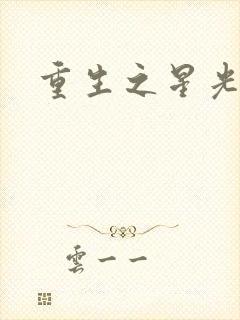 重生之星光
雲一一